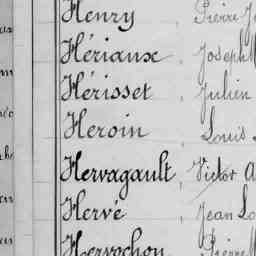 Henry, Pierre
Hériaux, Joseph
Hérisset, Julien
Heroin, Louis
Hervagault, Victor A
Hervé, Jean Lo
Hervochon, Pierre